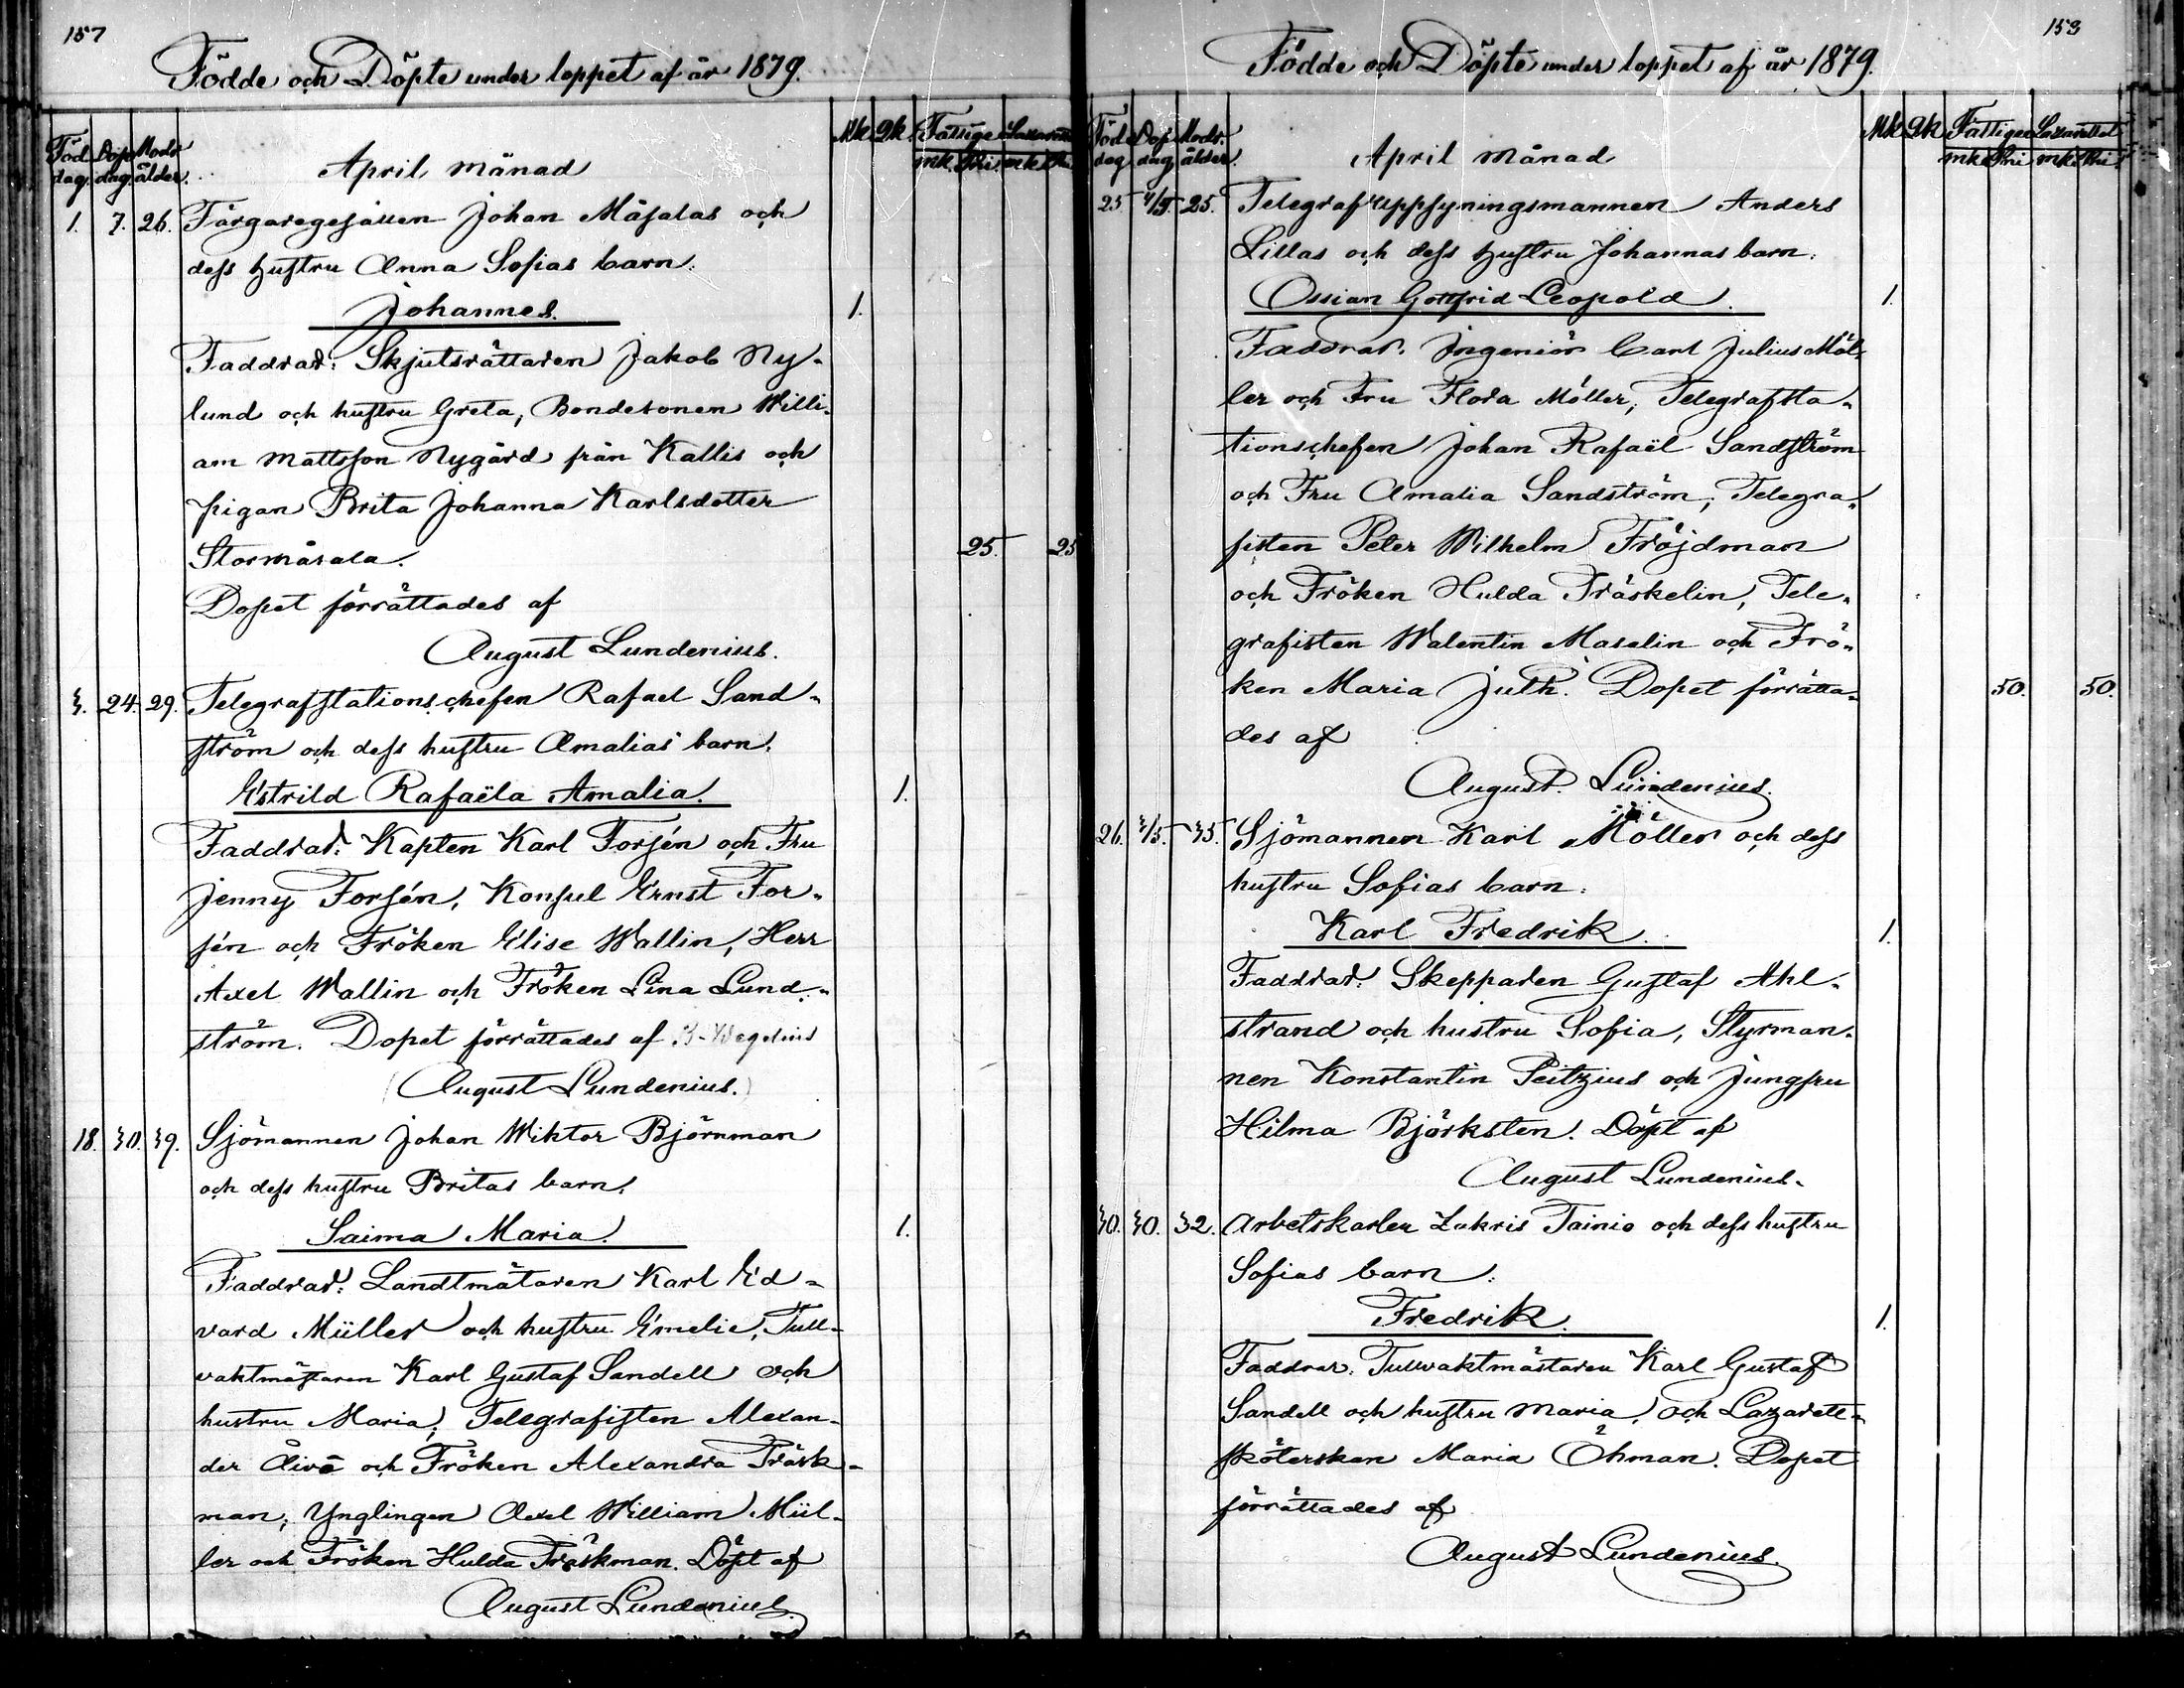 157
Födde och Döpte under loppet af år 1879.
Föd. dag. Dop dag. Mods ålder. April månad Mk. Qk. Fattige mk. Pni. Lazarettet mk. Pni.
1. 7. 26. Färgaregesällen Johan Måsalas och
dess hustru Anna Sofias barn:
Johannes. 1.
Faddrar: Skjutsrättaren Jakob Ny-
lund och hustru Greta, Bondesonen Willi-
am Mattsson Nygård från Kallis och
pigan Brita Johanna Karlsdotter
Stormåsala. 25. 25
Dopet förrättades af
August Lundenius.
3. 24. 29. Telegrafstationschefen Rafael Sand-
ström och dess hustru Amalias barn:
Estrild Rafaëla Amalia. 1.
Faddrar: Kapten Karl Forsén och Fru
Jenny Forsén, Konsul Ernst For-
sén och Fröken Elise Wallin, Herr
Axel Wallin och Fröken Lina Lund-
ström. Dopet förrättades af K. Wegelius
(August Lundenius.)
18. 30. 39. Sjömannen Johan Wiktor Björnman
och dess hustru Britas barn:
Saima Maria. 1.
Faddrar: Landtmätaren Karl Ed-
vard Müller och hustru Emelie, Tull-
vaktmästaren Karl Gustaf Sandell och
hustru Maria; Telegrafisten Alexan-
der och Fröken Alexandra Träsk-
man; Ynglingen Axel William Mül-
ler och Fröken Hulda Träskman. Döpt af
August Lundenius.
153
Födde och Döpte under loppet af år 1879.
Föd. dag Dop dag Mods. ålder. April månad Mk Qk Fattiges mk. Pni Lazarettet mk. Pni.
25. 4/5. 25. Telegrafuppsyningsmannen Anders
Lillas och dess hustru Johannas barn:
Ossian Gottfrid Leopold. 1.
Faddrar: Ingeniör Carl Julius Möl-
ler och Fru Flora Möller, Telegrafsta-
tionschefen Johan Rafaël Sandström
och Fru Amalia Sandström, Telegra-
fisten Peter Wilhelm Fröjdman
och Fröken Hulda Träskelin, Tele-
grafisten Walentin Maselin och Frö-
ken Maria Juth. Dopet förrätta- 50. 50.
des af
August Lundenius.
26. 3/5. 35. Sjömannen Karl Möller och dess
hustru Sofias barn:
Karl Fredrik. 1.
Faddrar: Skepparen Gustaf Ahl-
strand och hustru Sofia, Styrman-
nen Konstantin Peitzius och Jungfru
Hilma Björksten. Döpt af
August Lundenius.
30. 30. 32. Arbetskarlen Zakris Tainio och dess hustru
Sofias barn:
Fredrik. 1.
Faddrar: Tullvaktmästaren Karl Gustaf
Sandell och hustru Maria, och Lazarett-
sköterskan Maria Öhman. Dopet
förrättades af
August Lundenius.